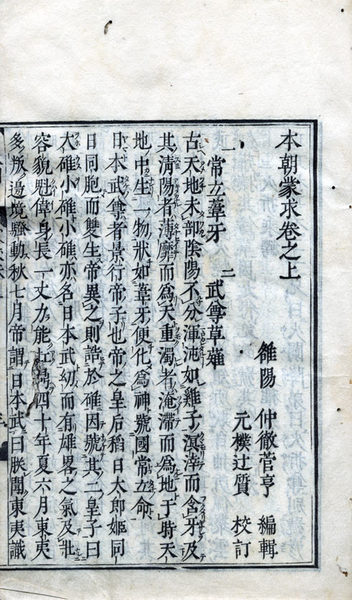 本朝蒙求卷之上
雒陽 仲徹菅亨 編輯
元樸辻質 校訂
一 常立葦牙 二 武尊草薙
古天地未剖陰陽不分渾沌如雞子溟涬而含牙及
其清陽者薄靡而爲天重濁者淹滯而爲地于時天
地中生一物狀如葦牙便化爲神號國常立命
日本武尊者景行帝子也帝之皇后稻日大郎姬同
日同胞而雙生帝異之則誥於碓因號其二皇子曰
大碓小碓小碓亦名日本武幼而有雄畧之氣及壯
容貌魁偉身長一丈力能扛鼎四十年夏六月東夷
多叛邊境騷動秋七月帝謂日本武曰朕聞東夷識